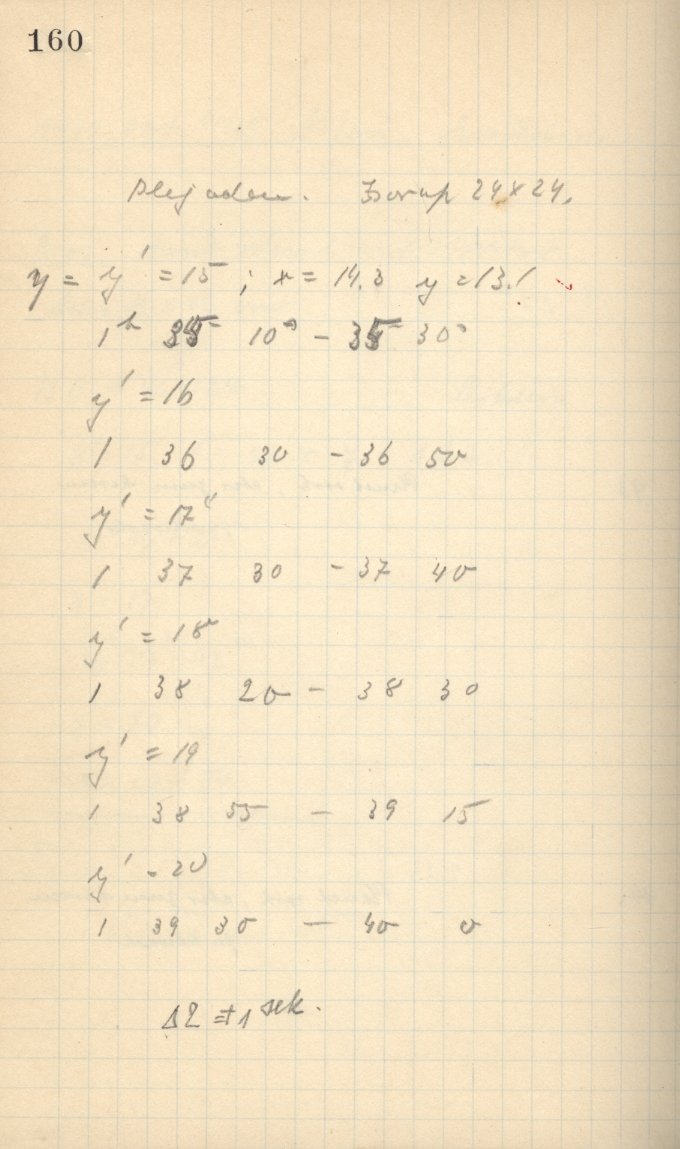 160
Plejaden. 24 x 24.
y = y' = 15 ; x = 14.3 y = 13.1
1h 35 10s - 35 30s
y' = 16
1 36 30 - 36 50
y' = 17
1 37 30 - 37 40
y' = 18
1 38 20 - 38 30
y' = 19
1 38 55 - 39 15
y' = 20
1 39 30 - 40 0
= +1 sek.